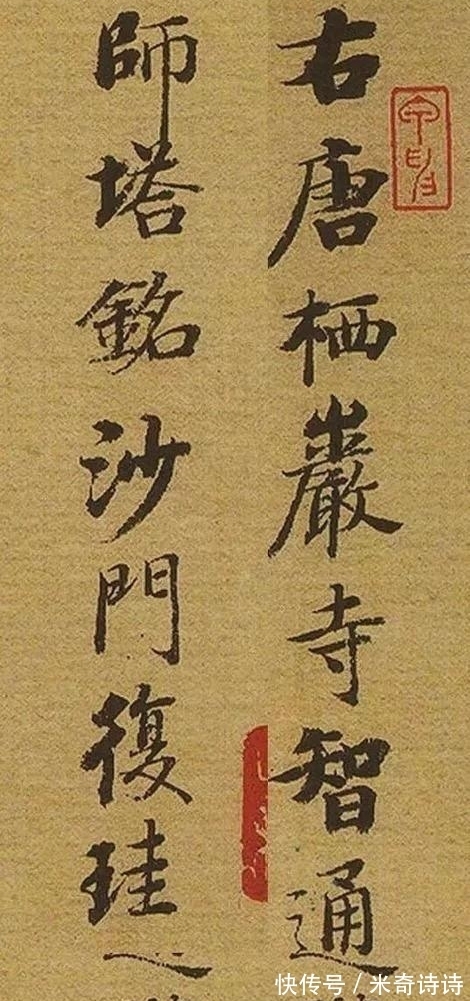 右唐栖巖寺智通
師塔銘沙門復珪
快传号/米奇诗诗